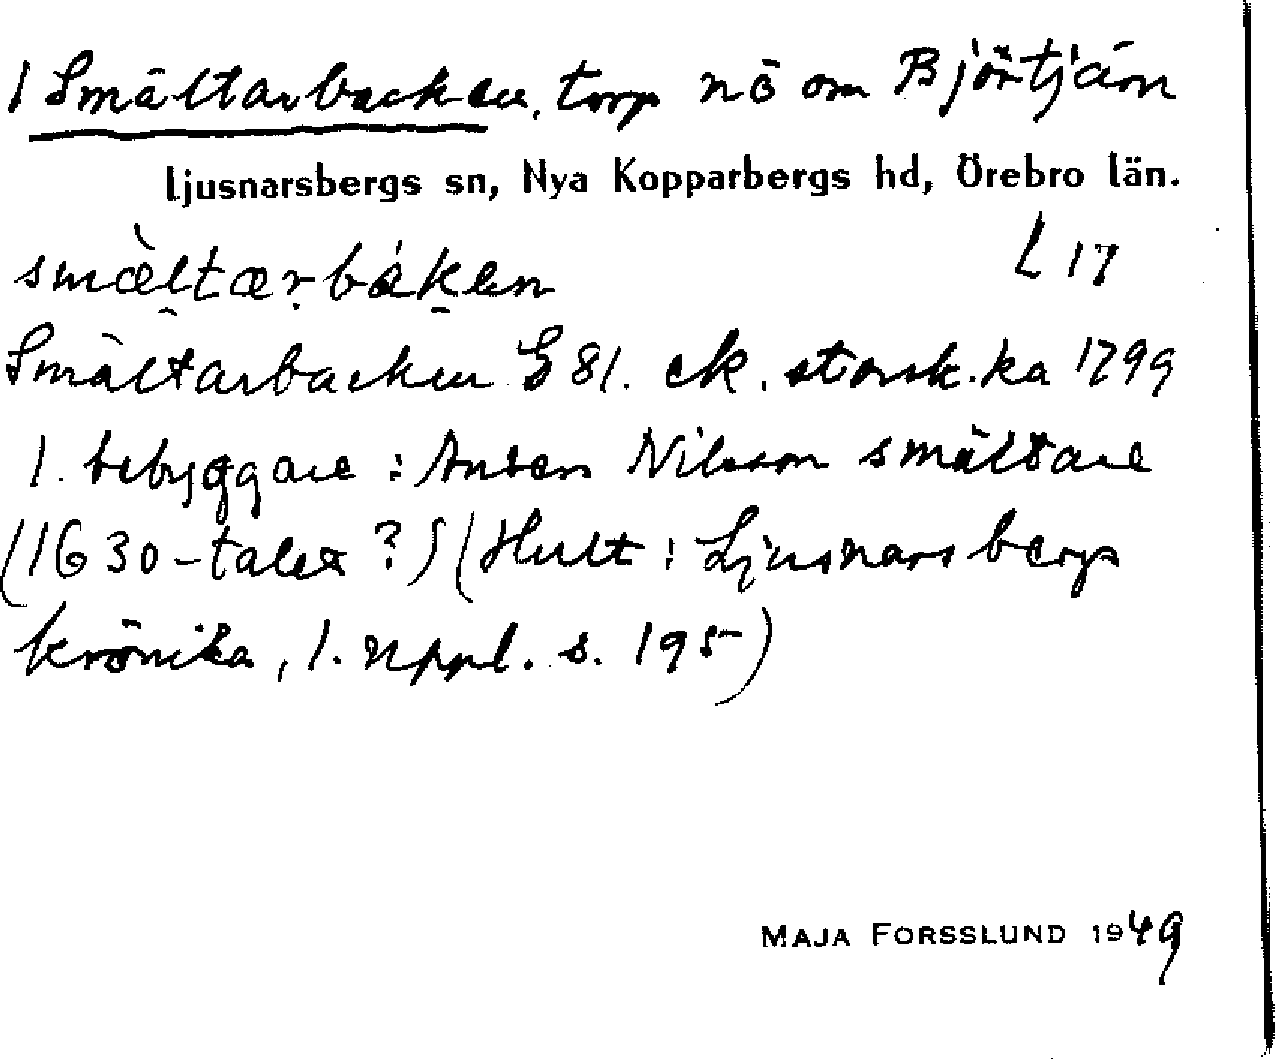 1 Smältarbacken, torp nö om Björtjärn
Ljusnarsbergs sn, Nya Kopparbergs hd, Örebro län.
smæ̀ltær̥báken L 17
Smältarbacken E 81. ek. storsk.ka 1799
1. bebyggare: Anders Nilsson smältare
(1630-talet?) (Hult: Ljusnarsbergs
krönika, 1. uppl. s. 195)
MAJA FORSSLUND 1949